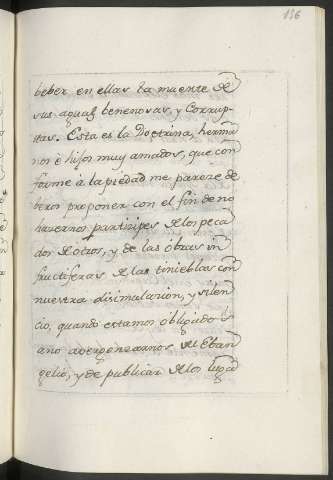 136
beber en ellas la muente de
sus aguas benenosas, y Corrup-
tas. Esta es la Doctrina, herma
nos è hijos muy amados, que con
forme à la piedad me pareze de
beros proponer con el fin de no
hazernos partizipes de los peca
dos de otros, y de las obras in
fructiferas de las tinieblas con
nuestra disimulazion, y silen
cio, quando estamos obligados
ano avergonzarnos del Eban
gelio, y de publicar de los